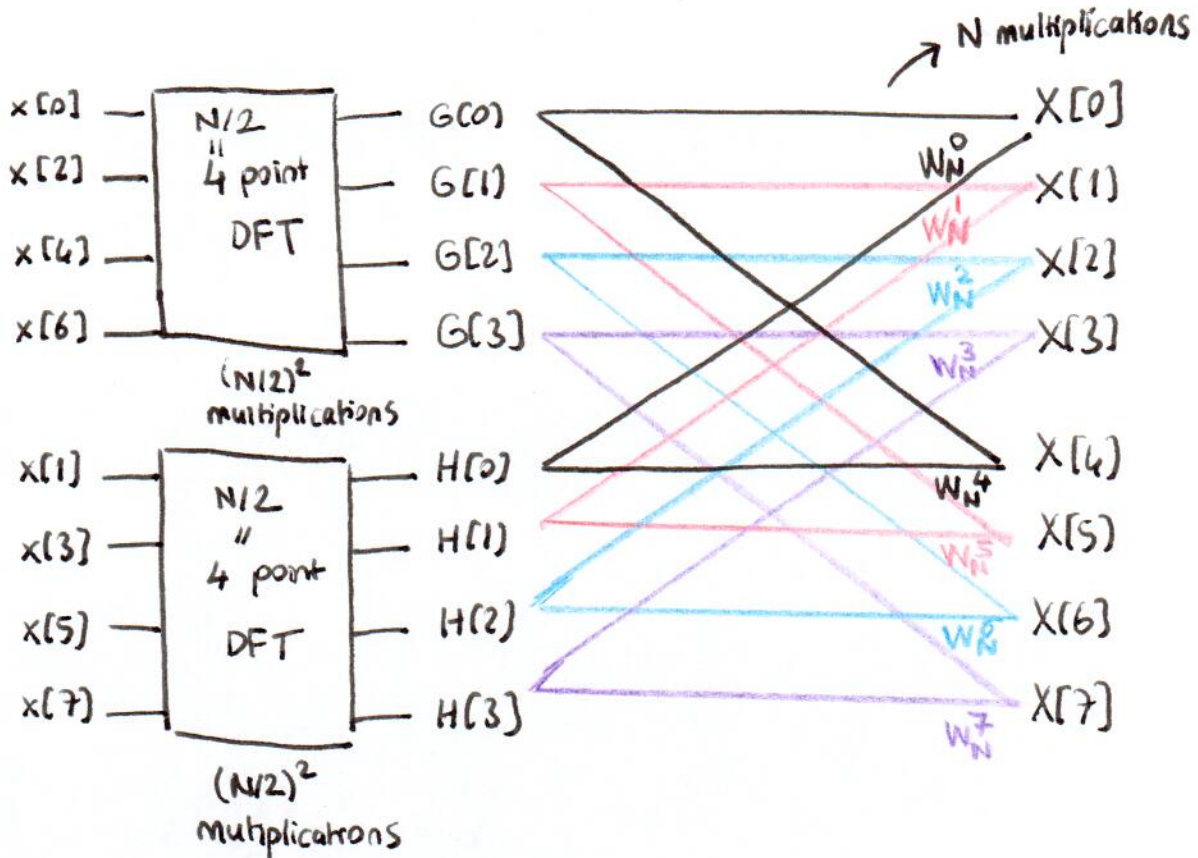 N multiplications
x[0]
x[2]
x[4]
x[6]
N/2
"
4 point
DFT
(N/2)²
multiplications
G[0]
G[1]
G[2]
G[3]
x[1]
x[3]
x[5]
x[7]
N/2
"
4 point
DFT
(N/2)²
multiplications
H[0]
H[1]
H[2]
H[3]
W_N^0
W_N^1
W_N^2
W_N^3
W_N^4
W_N^5
W_N^6
W_N^7
X[0]
X[1]
X[2]
X[3]
X[4]
X[5]
X[6]
X[7]